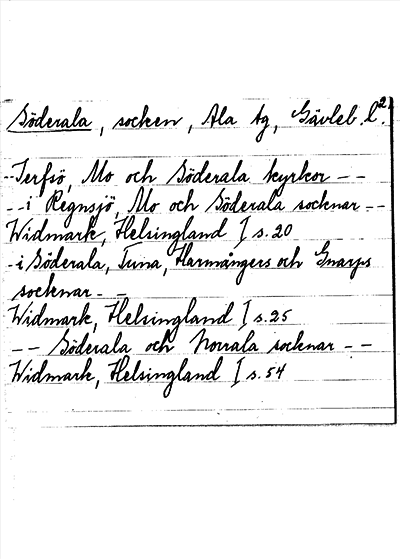 Söderala, socken, Ala tg, Gävleb. l.
--Terfsö, Mo och Söderala kyrkor --
-- i Regnsjö, Mo och Söderala socknar --
Widmark, Helsingland I s. 20
- i Söderala, Tuna, Harmångers och Gnarps
socknar --
Widmark, Helsingland I s. 25
-- Söderala och Norrala socknar --
Widmark, Helsingland I s. 54